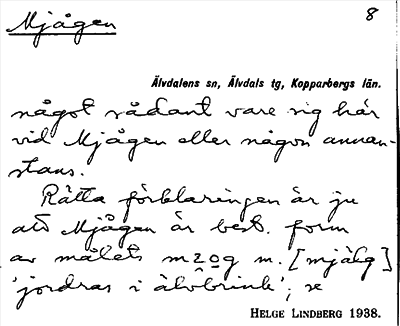 Mjågen
8
Älvdalens sn, Älvdals tg, Kopparbergs län.
något sådant vare sig här
vid Mjågen eller någon annan-
stans.
Rätta förklaringen är ju
att Mjågen är best. form
av målets m. [mjä̀g]
'jordras i älvbrink'; se
HELGE LINDBERG 1938.